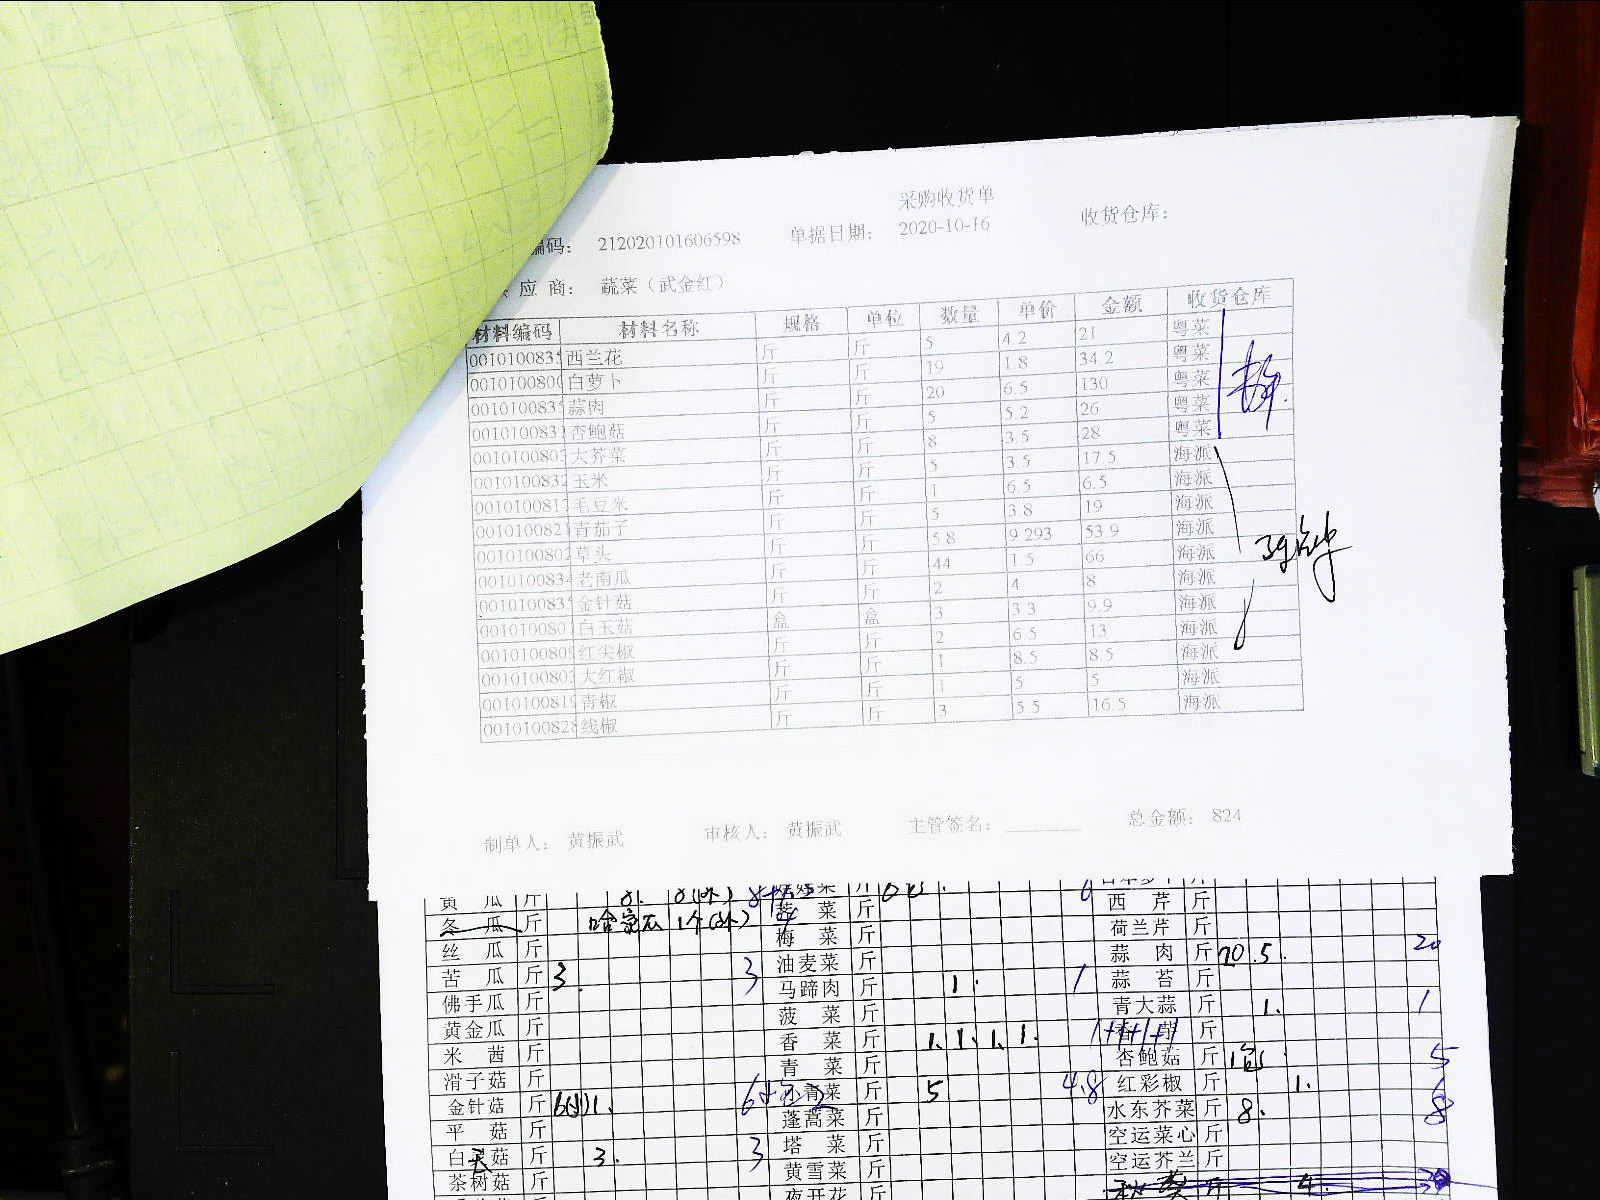 采购收货单
编码： 212020101606598 单据日期： 2020-10-16 收货仓库：
应 商： 蔬菜（武金红）
材料编码 材料名称 规格 单位 数量 单价 金额 收货仓库
0010100835 西兰花 斤 斤 5 4.2 21 粤菜
0010100800 白萝卜 斤 斤 19 1.8 34.2 粤菜
0010100835 蒜肉 斤 斤 20 6.5 130 粤菜
0010100831 杏鲍菇 斤 斤 5 5.2 26 粤菜
0010100803 大芥菜 斤 斤 8 3.5 28 粤菜
0010100832 玉米 斤 斤 5 3.5 17.5 海派
0010100817 毛豆米 斤 斤 1 6.5 6.5 海派
0010100821 青茄子 斤 斤 5 3.8 19 海派
0010100802 草头 斤 斤 5.8 9.293 53.9 海派
0010100834 老南瓜 斤 斤 44 1.5 66 海派
0010100835 金针菇 斤 斤 2 4 8 海派
0010100801 白玉菇 盒 盒 3 3.3 9.9 海派
0010100809 红尖椒 斤 斤 2 6.5 13 海派
0010100803 大红椒 斤 斤 1 8.5 8.5 海派
0010100819 青椒 斤 斤 1 5 5 海派
0010100828 线椒 斤 斤 3 5.5 16.5 海派
制单人： 黄振武 审核人： 黄振武 主管签名： 总金额： 824
黄 瓜 斤 8. 斤 西 芹 斤
冬 瓜 斤 菜 斤 荷兰芹 斤
丝 瓜 斤 梅 菜 斤 蒜 肉 斤 20.5. 20
苦 瓜 斤 3. 3 油麦菜 斤 蒜 苔 斤
佛手瓜 斤 马蹄肉 斤 1. 1 青大蒜 斤 1. 1
黄金瓜 斤 菠 菜 斤 斤
米 茜 斤 香 菜 斤 1. 1. 1. 1. 杏鲍菇 斤 5
滑子菇 斤 青 菜 斤 红彩椒 斤 1.
金针菇 斤 青菜 斤 5 4.8 水东芥菜 斤 8. 8
平 菇 斤 蓬蒿菜 斤 空运菜心 斤
白 菇 斤 3. 3 塔 菜 斤 空运芥兰 斤
茶树菇 斤 黄雪菜 斤 斤 4.
夜开花 斤